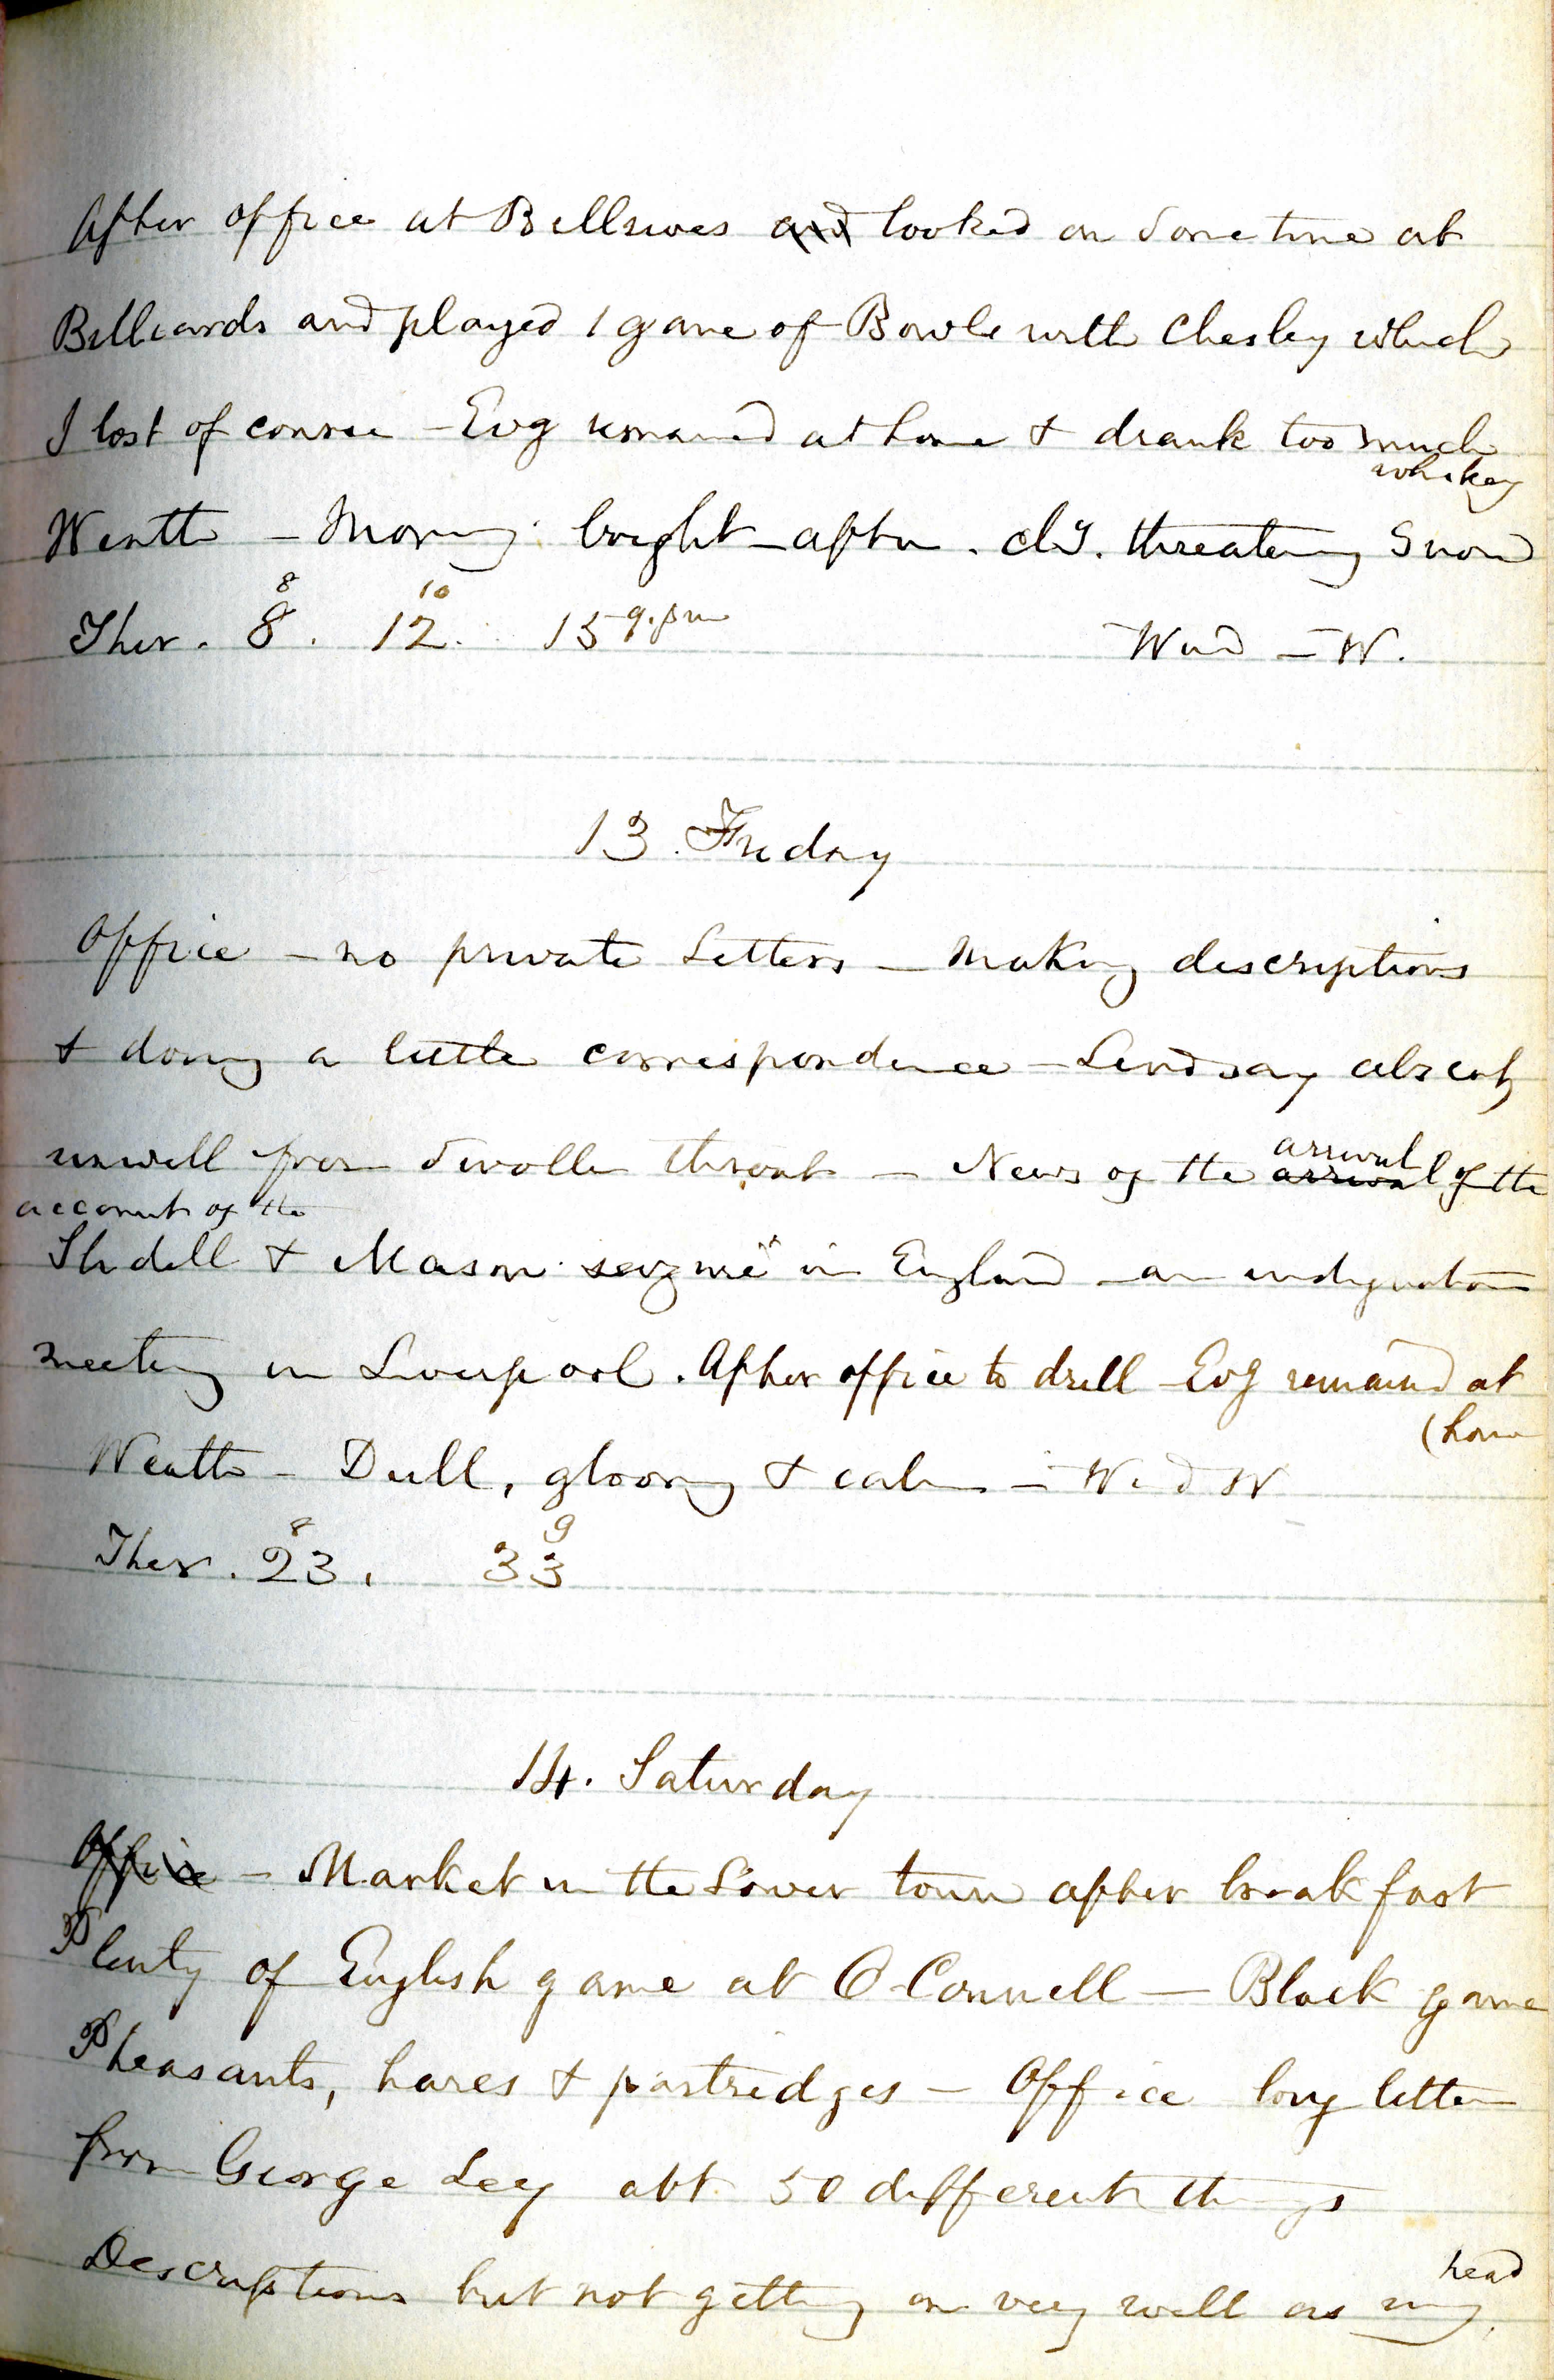 After office at Bellrives and looked on some time at
Billiards and played 1 game of Bowls with Chesley which
I lost of course - Evg remained at home & drank too much
whiskey
Weathr - Morning bright - aftn. cly. threatening Snow
8 10
Ther. 8. 12. 15 9.pm Wind - W.
13. Friday
Office - no private Letters - making descriptions
& doing a little correspondence - Lindsay absent
unwell from swollen throat - News of the arrival arrival of the
account of the
Slidell & Mason seizure in England - an indignation
meeting in Liverpool. After office to drill - Evg remained at
(home
Weathr - Dull, gloomy & calm - Wind W
8 9
Ther. 23. 33
14. Saturday
Office - Market in the Lower town after breakfast
Plenty of English game at O'Connell - Black game
Pheasants, hares & partridges - Office long letter
from George Ley abt 50 different things
head
Descriptions but not getting on very well as my